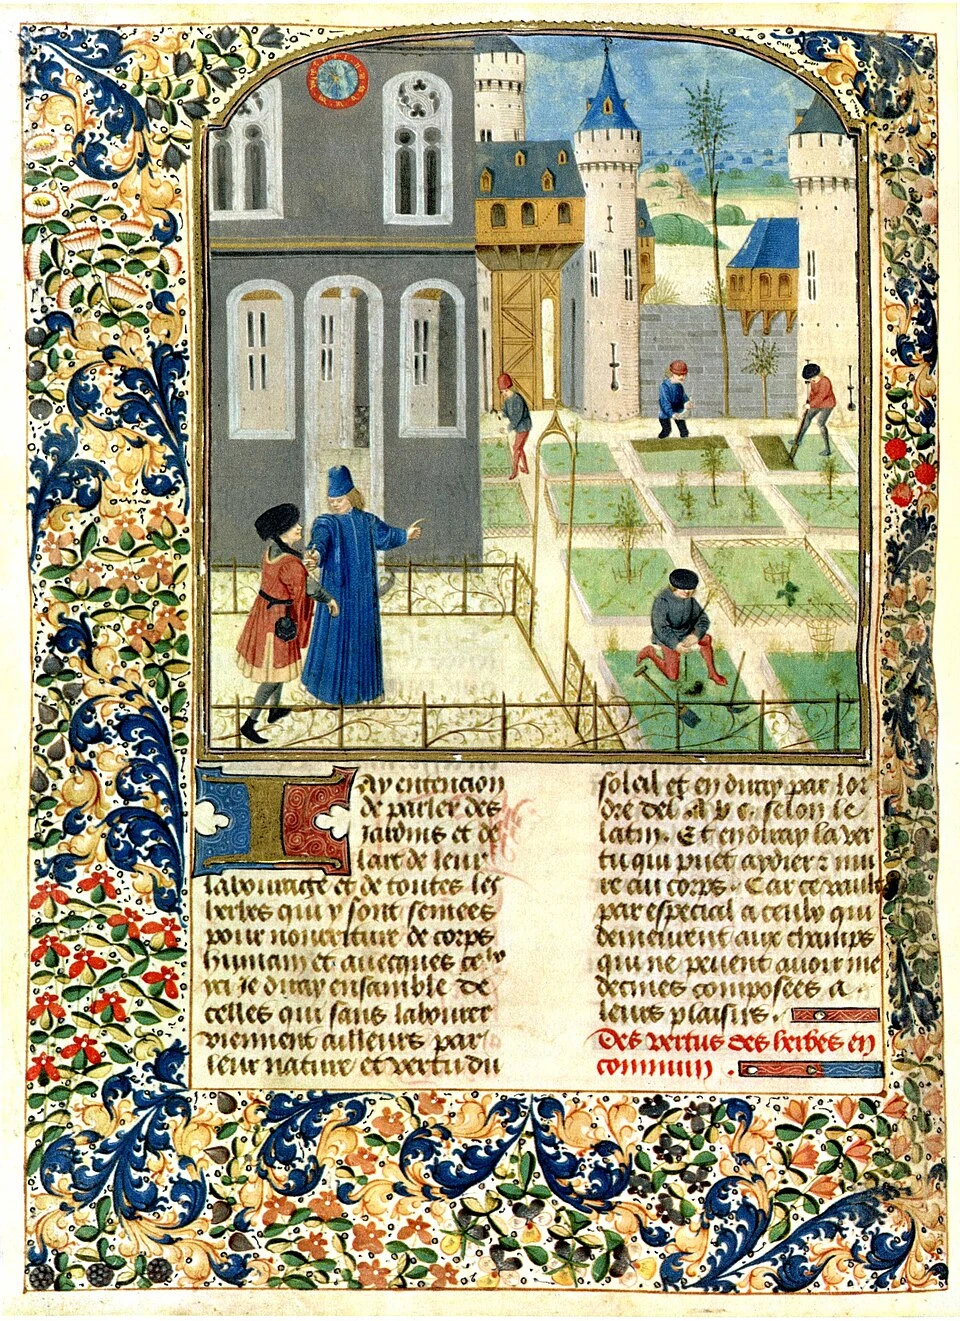 Ay entencion
de parler des
Jardins et de
lart de leur
labourage et de toutes les
herbes qui y sont semees
pour nourriture de corps
humain et avecques ce
je diray ensamble de
celles qui sans labourer
viennent ailleurs par
leur nature et vertu du
soleil et en diray par lor
dre del. A. b. c. selon le
latin. Et en diray la ver
tu qui puet aydier z nui
re au corps. Car ce vault
par especial a ceulx qui
demeurent aux champs
qui ne peuent avoir me
decines composees a
leurs plaisirs.
Des vertus des herbes en
commun.